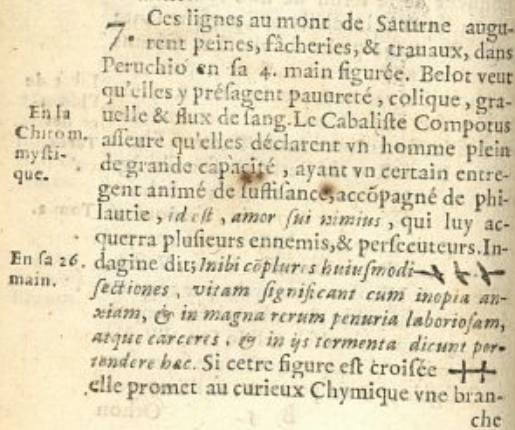 7. Ces lignes au mont de Saturne augu-
rent peines, fâcheries, & trauaux, dans
Peruchio en sa 4. main figurée. Belot veut
qu'elles y présagent pauureté, colique, gra-
uelle & flux de sang. Le Cabaliste Compotus
En sa
Chirom.
mysti-
que.
asseure qu'elles déclarent vn homme plein
de grande capacité, ayant vn certain entre-
gent animé de suffisance, accõpagné de phi-
lautie, id est, amor sui nimius, qui luy ac-
querra plusieurs ennemis, & persecuteurs. In-
En sa 26.
main.
dagine dit; Inibi cõplures huiusmodi
sectiones, vitam significant cum inopia an-
xiam, & in magna rerum penuria laboriosam,
atque carceres, & in ijs tormenta dicunt por-
tendere hæc. Si cette figure est croisée
elle promet au curieux Chymique vne bran-
che